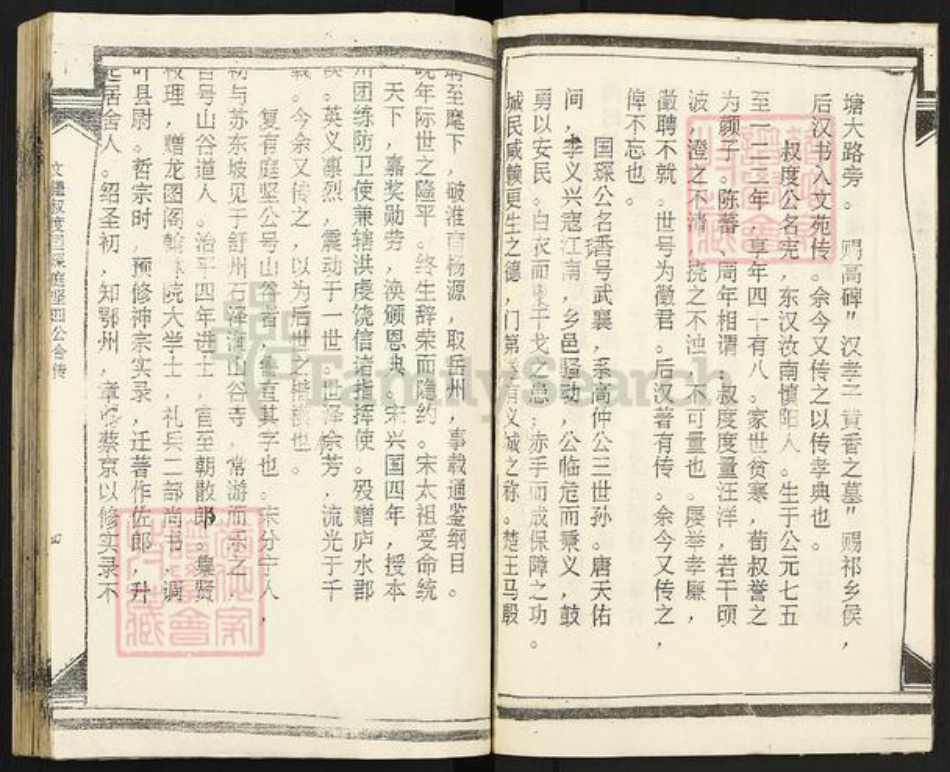 塘大路旁。赐高碑"汉孝子黄香之墓"赐祁乡侯，
后汉书入文苑传。余今又传之以传孝典也。
叔度公名宪，东汉汝南慎阳人。生于公元七五
至一二二年，享年四十有八。家世贫寒，荀叔誉之
为颜子。陈蕃、周年相谓，叔度度量汪洋，若干顷
波，澄之不清，挠之不浊，不可量也。屡举孝廉，
徵聘不就。世号为徵君。后汉著有传。余今又传之，
俾不忘也。
国琛公名香号武襄，系高仲公三世孙。唐天佑
间，李义兴寇江南，乡邑骚动，公临危而秉义，鼓
勇以安民。白衣而 干戈之患，赤手而成保障之功。
城民咸赖更生之德，门第 有义城之称。楚王马殷
聘至麾下，破淮南杨源，取岳州，事载通鉴纲目。
晚年际世之隆平。终生辞荣而隐约。宋太祖受命统
天下，嘉奖勋劳，涣颁恩典，宋兴国四年，授本
州团练防卫使兼辖洪虔饶信诸指挥使。殁赠庐水郡
侯。英义凛烈，震动于一世。世泽余芳，流光于千
载。今余又传之，以为后世之楷模也。
复有庭坚公号山谷者，鲁直其字也。宋分宁人，
初与苏东坡见于舒州石泽 山谷寺，常游而乐之，
自号山谷道人。治平四年进士，官至朝散郎。集贤
校理，赠龙图阁翰林院大学士，礼兵二部尚书，调
叶县尉。哲宗时，预修神宗实录，迁著作佐郎，升
起居舍人。绍圣初，知鄂州，章 蔡京以修实录不
文疆叔度国琛庭坚四公合传
四
FamilySearch